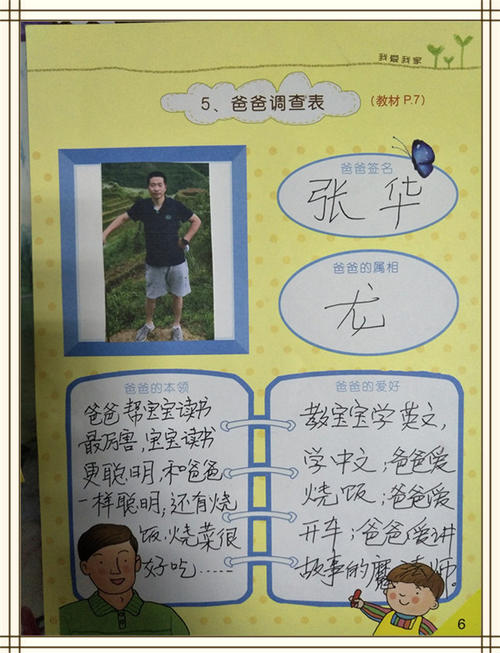 我爱我家
5、爸爸调查表
(教材 P.7)
爸爸签名
张华
爸爸的属相
龙
爸爸的本领
爸爸帮宝宝读书
最厉害,宝宝读书
更聪明,和爸爸
一样聪明;还有烧
饭.烧菜很
好吃……
爸爸的爱好
教宝宝学英文,
学中文;爸爸爱
烧饭;爸爸爱
开车;爸爸爱讲
故事的魔法师。
6